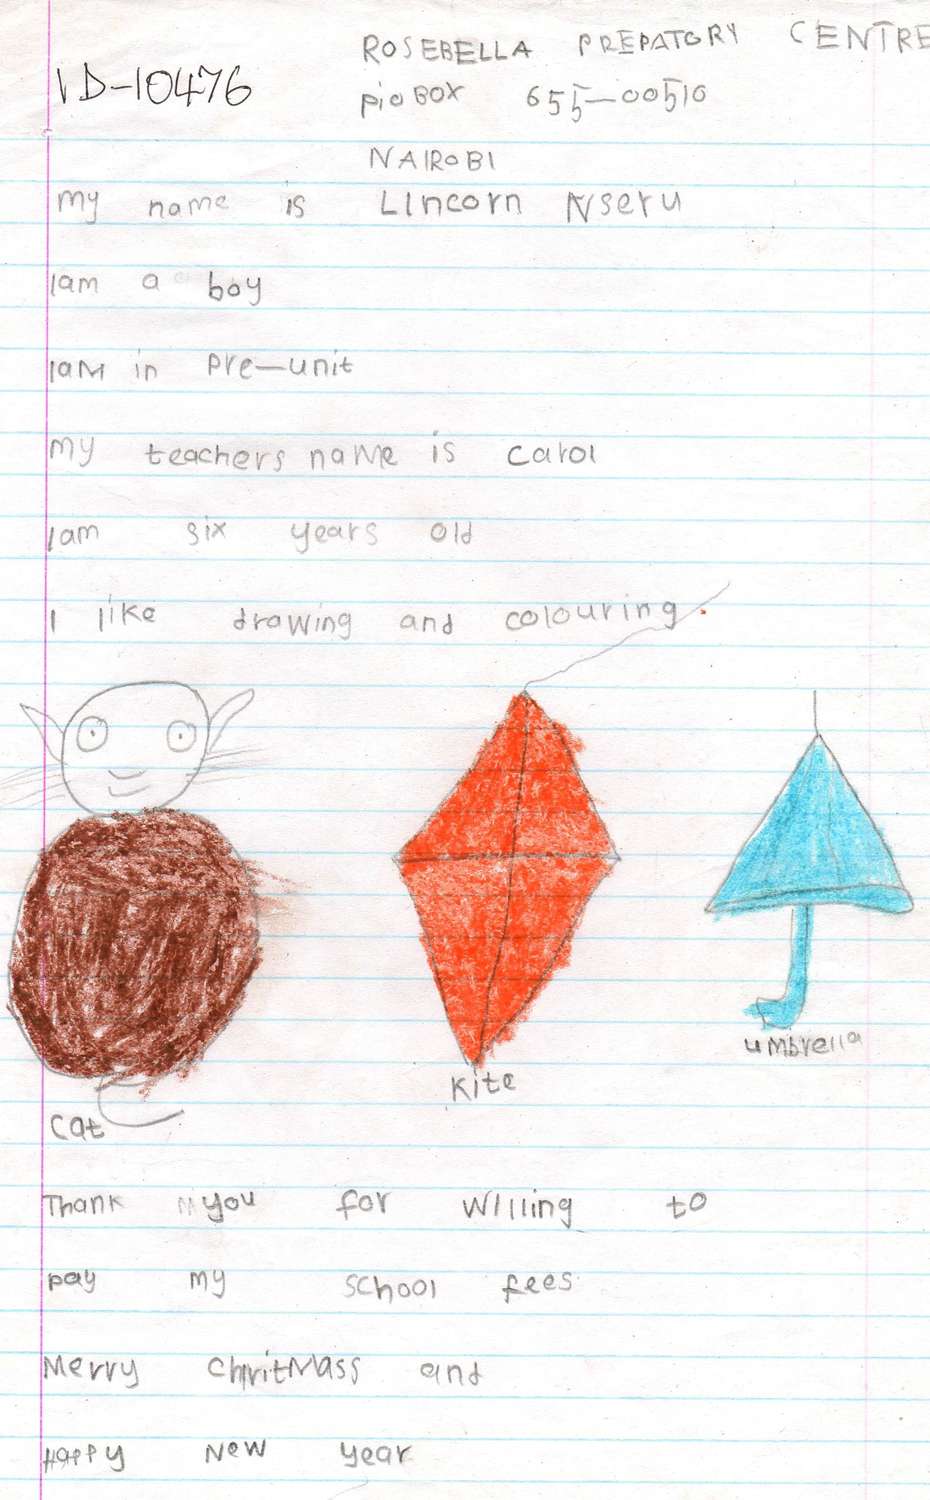 ROSEBELLA PREPATORY CENTRE
ID-10476
pio BOX 655-00510
NAIROBI
My name is LIncorn Nseru
Iam a boy
IaM in Pre-unit
My teachers naMe is carol
Iam six years old
I like drawing and colouring.
umbrella
Kite
Cat
Thank you for willing to
pay my school fees
Merry chritMass and
Happy New year